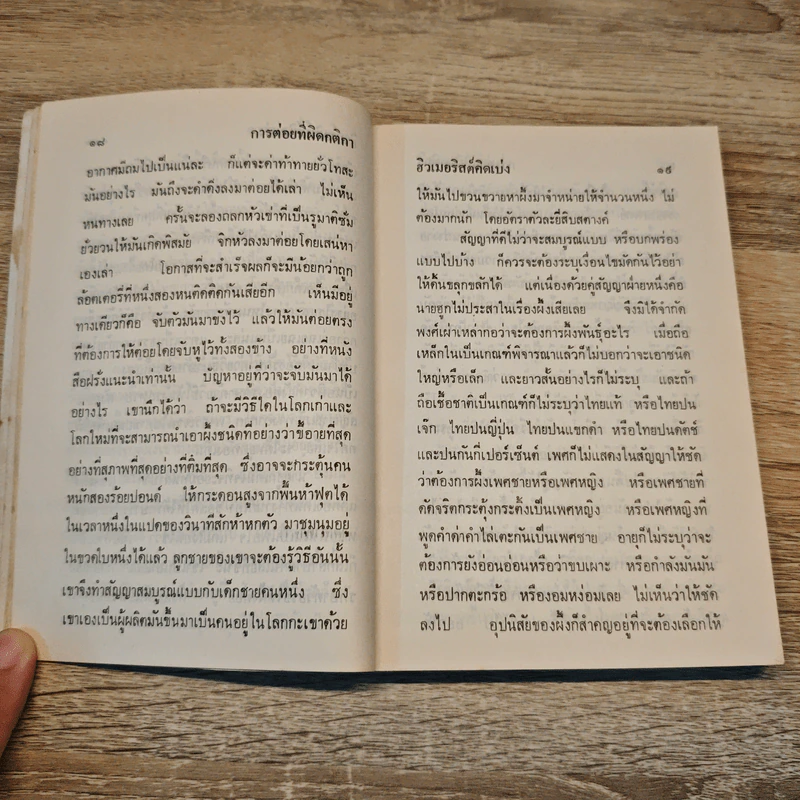 ๑๘ การต่อยที่ผิดกติกา
อากาศมีถมไปเป็นแน่ละ ก็แต่จะด่าท้าทายยั่วโทสะ
มันอย่างไร มันถึงจะดำดิ่งลงมาต่อยได้เล่า ไม่เห็น
หนทางเลย ครั้นจะลองถลกหัวเข่าที่เป็นรูมาติซั่ม
ยั่วยวนให้มันเกิดพิสมัย จิกหัวลงมาต่อยโดยเสน่หา
เองเล่า โอกาสที่จะสำเร็จผลก็จะมีน้อยกว่าถูก
ล้อตเตอรี่ที่หนึ่งสองหนติดติดกันเสียอีก เห็นมีอยู่
ทางเดียวก็คือ จับตัวมันมาขังไว้ แล้วให้มันต่อยตรง
ที่ต้องการให้ต่อยโดยจับหูไว้ทั้งสองข้าง อย่างที่หนัง
สือฝรั่งแนะนำเท่านั้น บัญหาอยู่ที่ว่าจะจับมันมาได้
อย่างไร เขานึกได้ว่า ถ้าจะมีวิธีใดในโลกเก่าและ
โลกใหม่ที่จะสามารถนำเอาผึ้งชนิดที่อย่างว่าขี้อายที่สุด
อย่างที่สุภาพที่สุดอย่างที่ติ๋มที่สุด ซึ่งอาจจะกระตุ้นคน
หนักสองร้อยปอนด์ ให้กระดอนสูงจากพื้นห้าฟุตได้
ในเวลาหนึ่งในแปดของวินาทีสักห้าหกตัว มาชุมนุมอยู่
ในขวดใบหนึ่งได้แล้ว ลูกชายของเขาจะต้องรู้วิธีอันนั้น
เขาจึงทำสัญญาสมบูรณ์แบบกับเด็กชายคนหนึ่ง ซึ่ง
เขาเองเป็นผู้ผลิตมันขึ้นมาเป็นคนอยู่ในโลกกะเขาด้วย
ฮิวเมอริสต์คิดเบ่ง ๑๙
ให้มันไปขวนขวายหาผึ้งมาจำหน่ายให้จำนวนหนึ่ง ไม่
ต้องมากนัก โดยอัตราตัวละยี่สิบสตางค์
สัญญาที่ดีไม่ว่าจะสมบูรณ์แบบ หรือบกพร่อง
แบบไปบ้าง ก็ควรจะต้องระบุเงื่อนไขมัดกันไว้อย่า
ให้ดิ้นขลุกขลักได้ แต่เนื่องด้วยคู่สัญญาฝ่ายหนึ่งคือ
นายฮูกไม่ประสาในเรื่องผึ้งเสียเลย จึงมิได้จำกัด
พงศ์เผ่าเหล่ากอว่าจะต้องการผึ้งพันธุ์อะไร เมื่อถือ
เหล็กในเป็นเกณฑ์พิจารณาแล้วก็ไม่บอกว่าจะเอาชนิด
ใหญ่หรือเล็ก และยาวสั้นอย่างไรก็ไม่ระบุ และถ้า
ถือเชื้อชาติเป็นเกณฑ์ก็ไม่ระบุว่าไทยแท้ หรือไทยปน
เจ๊ก ไทยปนญี่ปุ่น ไทยปนแขกดำ หรือไทยปนดัตช์
และปนกันกี่เปอร์เซ็นต์ เพศก็ไม่แสดงในสัญญาให้ชัด
ว่าต้องการผึ้งเพศชายหรือเพศหญิง หรือเพศชายที่
ดัดจริตกระตุ้งกระติ้งเป็นเพศหญิง หรือเพศหญิงที่
พูดคำด่าคำไล่เตะกันเป็นเพศชาย อายุก็ไม่ระบุว่าจะ
ต้องการยังอ่อนอ่อนหรือว่าขบเผาะ หรือกำลังมันมัน
หรือปากตะกร้อ หรืองอมหง่อมเลย ไม่เห็นว่าให้ชัด
ลงไป อุปนิสัยของผึ้งก็สำคญอยู่ที่จะต้องเลือกให้